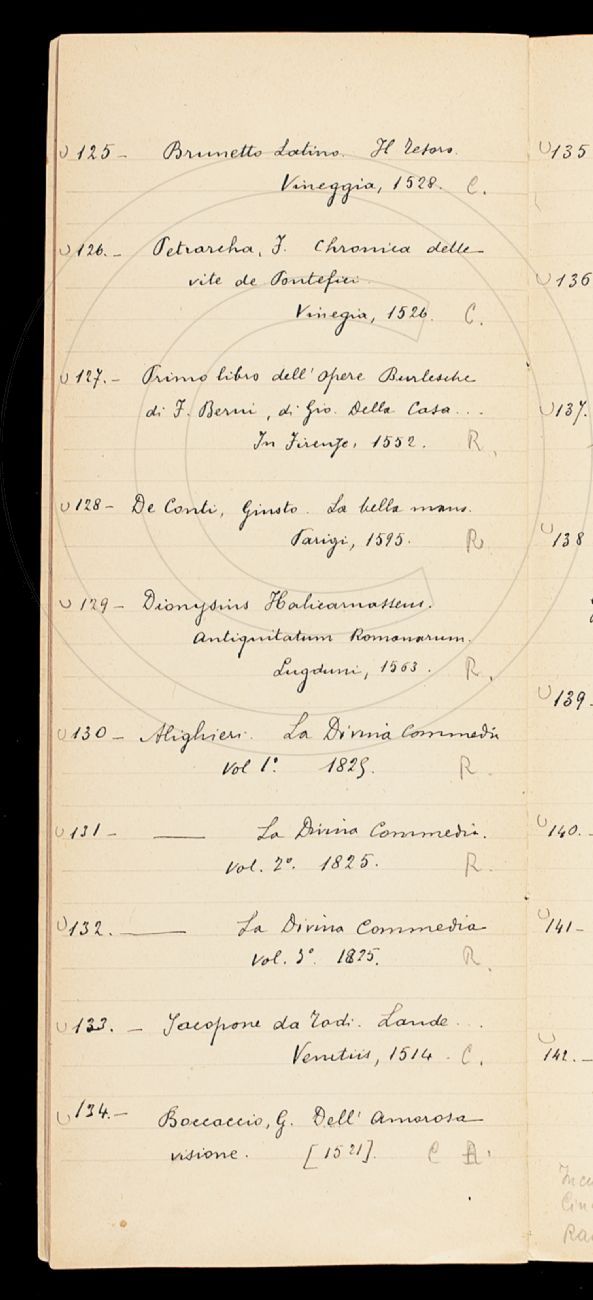 125 - Brunetto Latino. Il Tesoro.
Vineggia, 1528. C.
126. - Petrarcha, F. Chronica delle
vite de Pontefici
Vinegia, 1526. C.
127. - Primo libro dell' Opere Burlesche
di F. Berni, di Gio. Della Casa...
In Firenze, 1552. R.
128 - De Conti, Giusto. La bella mano.
Parigi, 1595. R
129 - Dionysius Halicarnasseus.
Antiquitatum Romanarum.
Lugduni, 1563. R.
130 - Alighieri. La Divina Commedia
Vol 1º. 1825. R.
131 - —— La Divina Commedia.
Vol. 2º. 1825. R.
132. —— La Divina Commedia
Vol. 3º. 1825. R.
133. - Jacopone da Todi. Laude...
Venetiis, 1514. C.
134. - Boccaccio, G. Dell' Amorosa
visione. [1521]. C R.
135
136
137.
138
139.
140. -
141 -
142. -